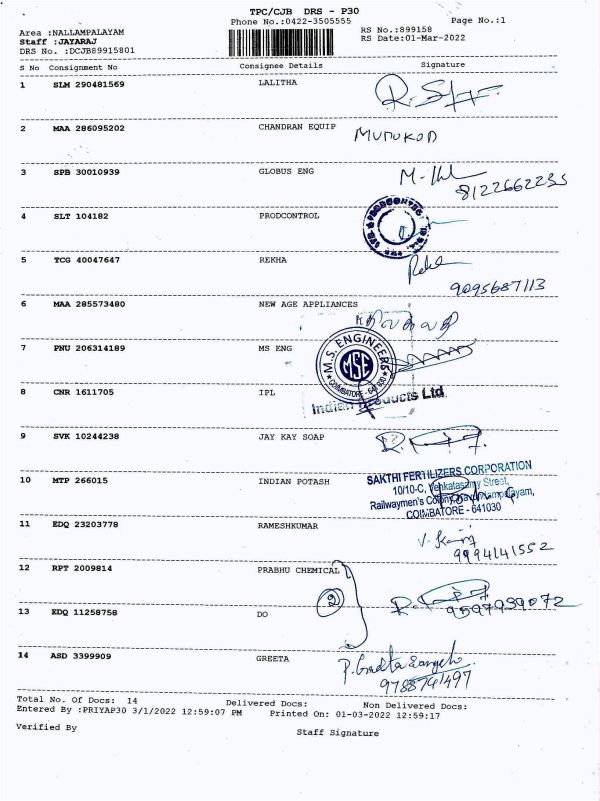 TPC/CJB DRS - P30
Phone No.:0422-3505555
Page No.:1
Area :NALLAMPALAYAM
RS No.:899158
Staff :JAYARAJ
RS Date:01-Mar-2022
DRS No. :DCJB89915801
S No Consignment No Consignee Details Signature
1 SLM 290481569 LALITHA
2 MAA 286095202 CHANDRAN EQUIP
3 SPB 30010939 GLOBUS ENG
8122662235
4 SLT 104182 PRODCONTROL
5 TCG 40047647 REKHA
Reka
9095687113
6 MAA 285573480 NEW AGE APPLIANCES
7 PNU 206314189 MS ENG
M.S. ENGINEERS
MSE
COIMBATORE
8 CNR 1611705 IPL
Indian Products Ltd
9 SVK 10244238 JAY KAY SOAP
10 MTP 266015 INDIAN POTASH
SAKTHI FERTILIZERS CORPORATION
10/10-C, Venkatasamy Street,
Railwaymen's Colony,
COIMBATORE - 641030
11 EDQ 23203778 RAMESHKUMAR
9994141552
12 RPT 2009814 PRABHU CHEMICAL
2
9597939072
13 EDQ 11258758 DO
14 ASD 3399909 GREETA
9788741497
Total No. Of Docs: 14 Delivered Docs: Non Delivered Docs:
Entered By :PRIYAP30 3/1/2022 12:59:07 PM Printed On: 01-03-2022 12:59:17
Verified By
Staff Signature